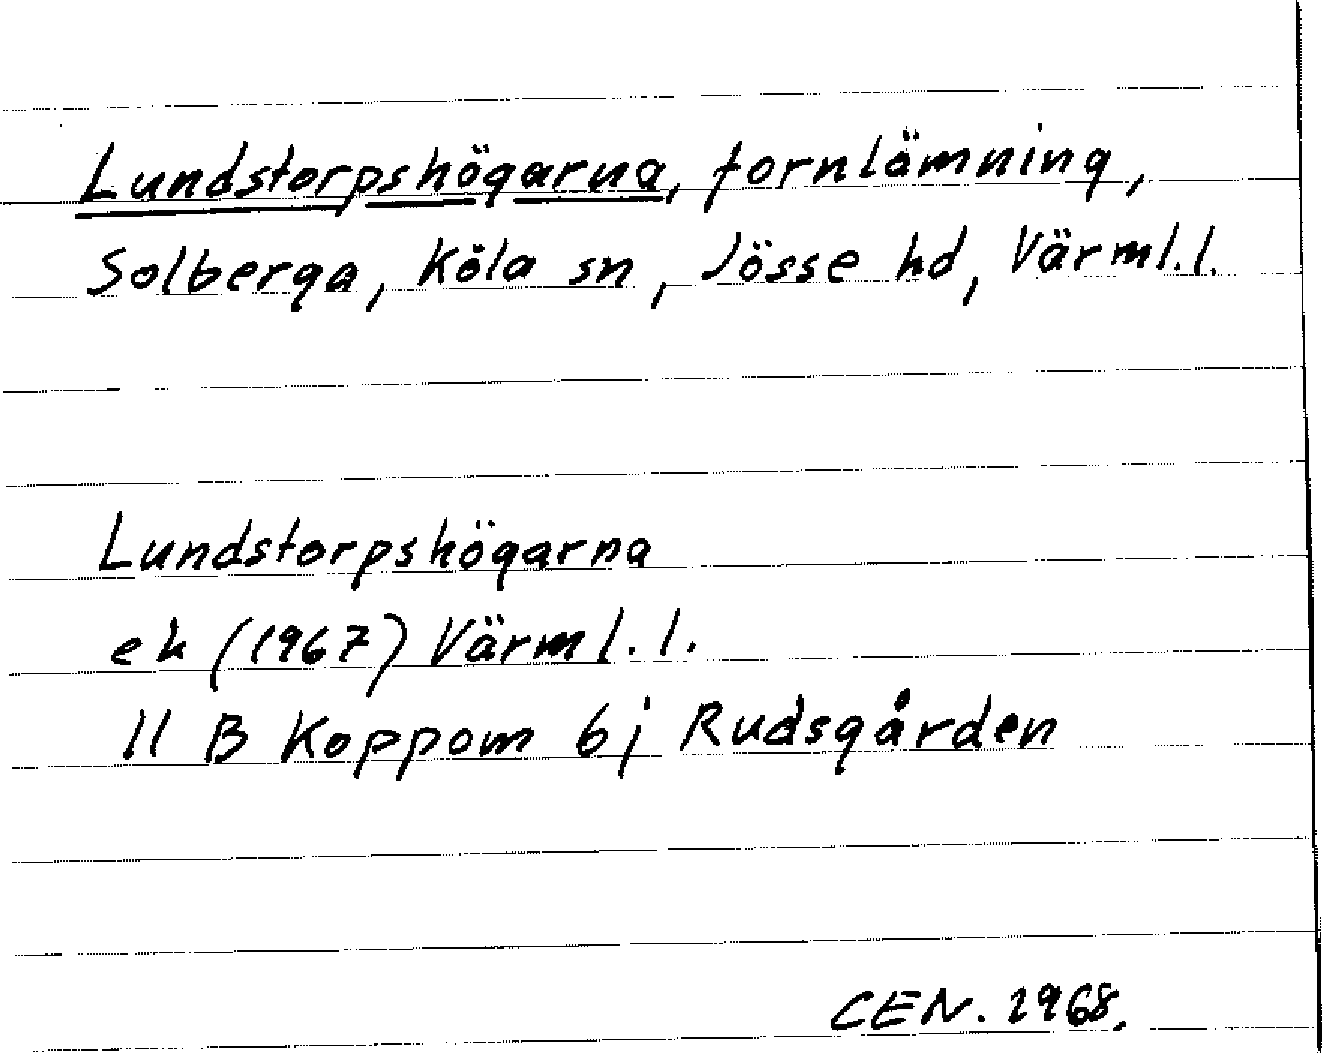 Lundstorpshögarna, fornlämning,
Solberga, Köla sn, Jösse hd, Värml.l.
Lundstorpshögarna
ek (1967) Värml.l.
11 B Koppom 6j Rudsgården
CEN. 1968.